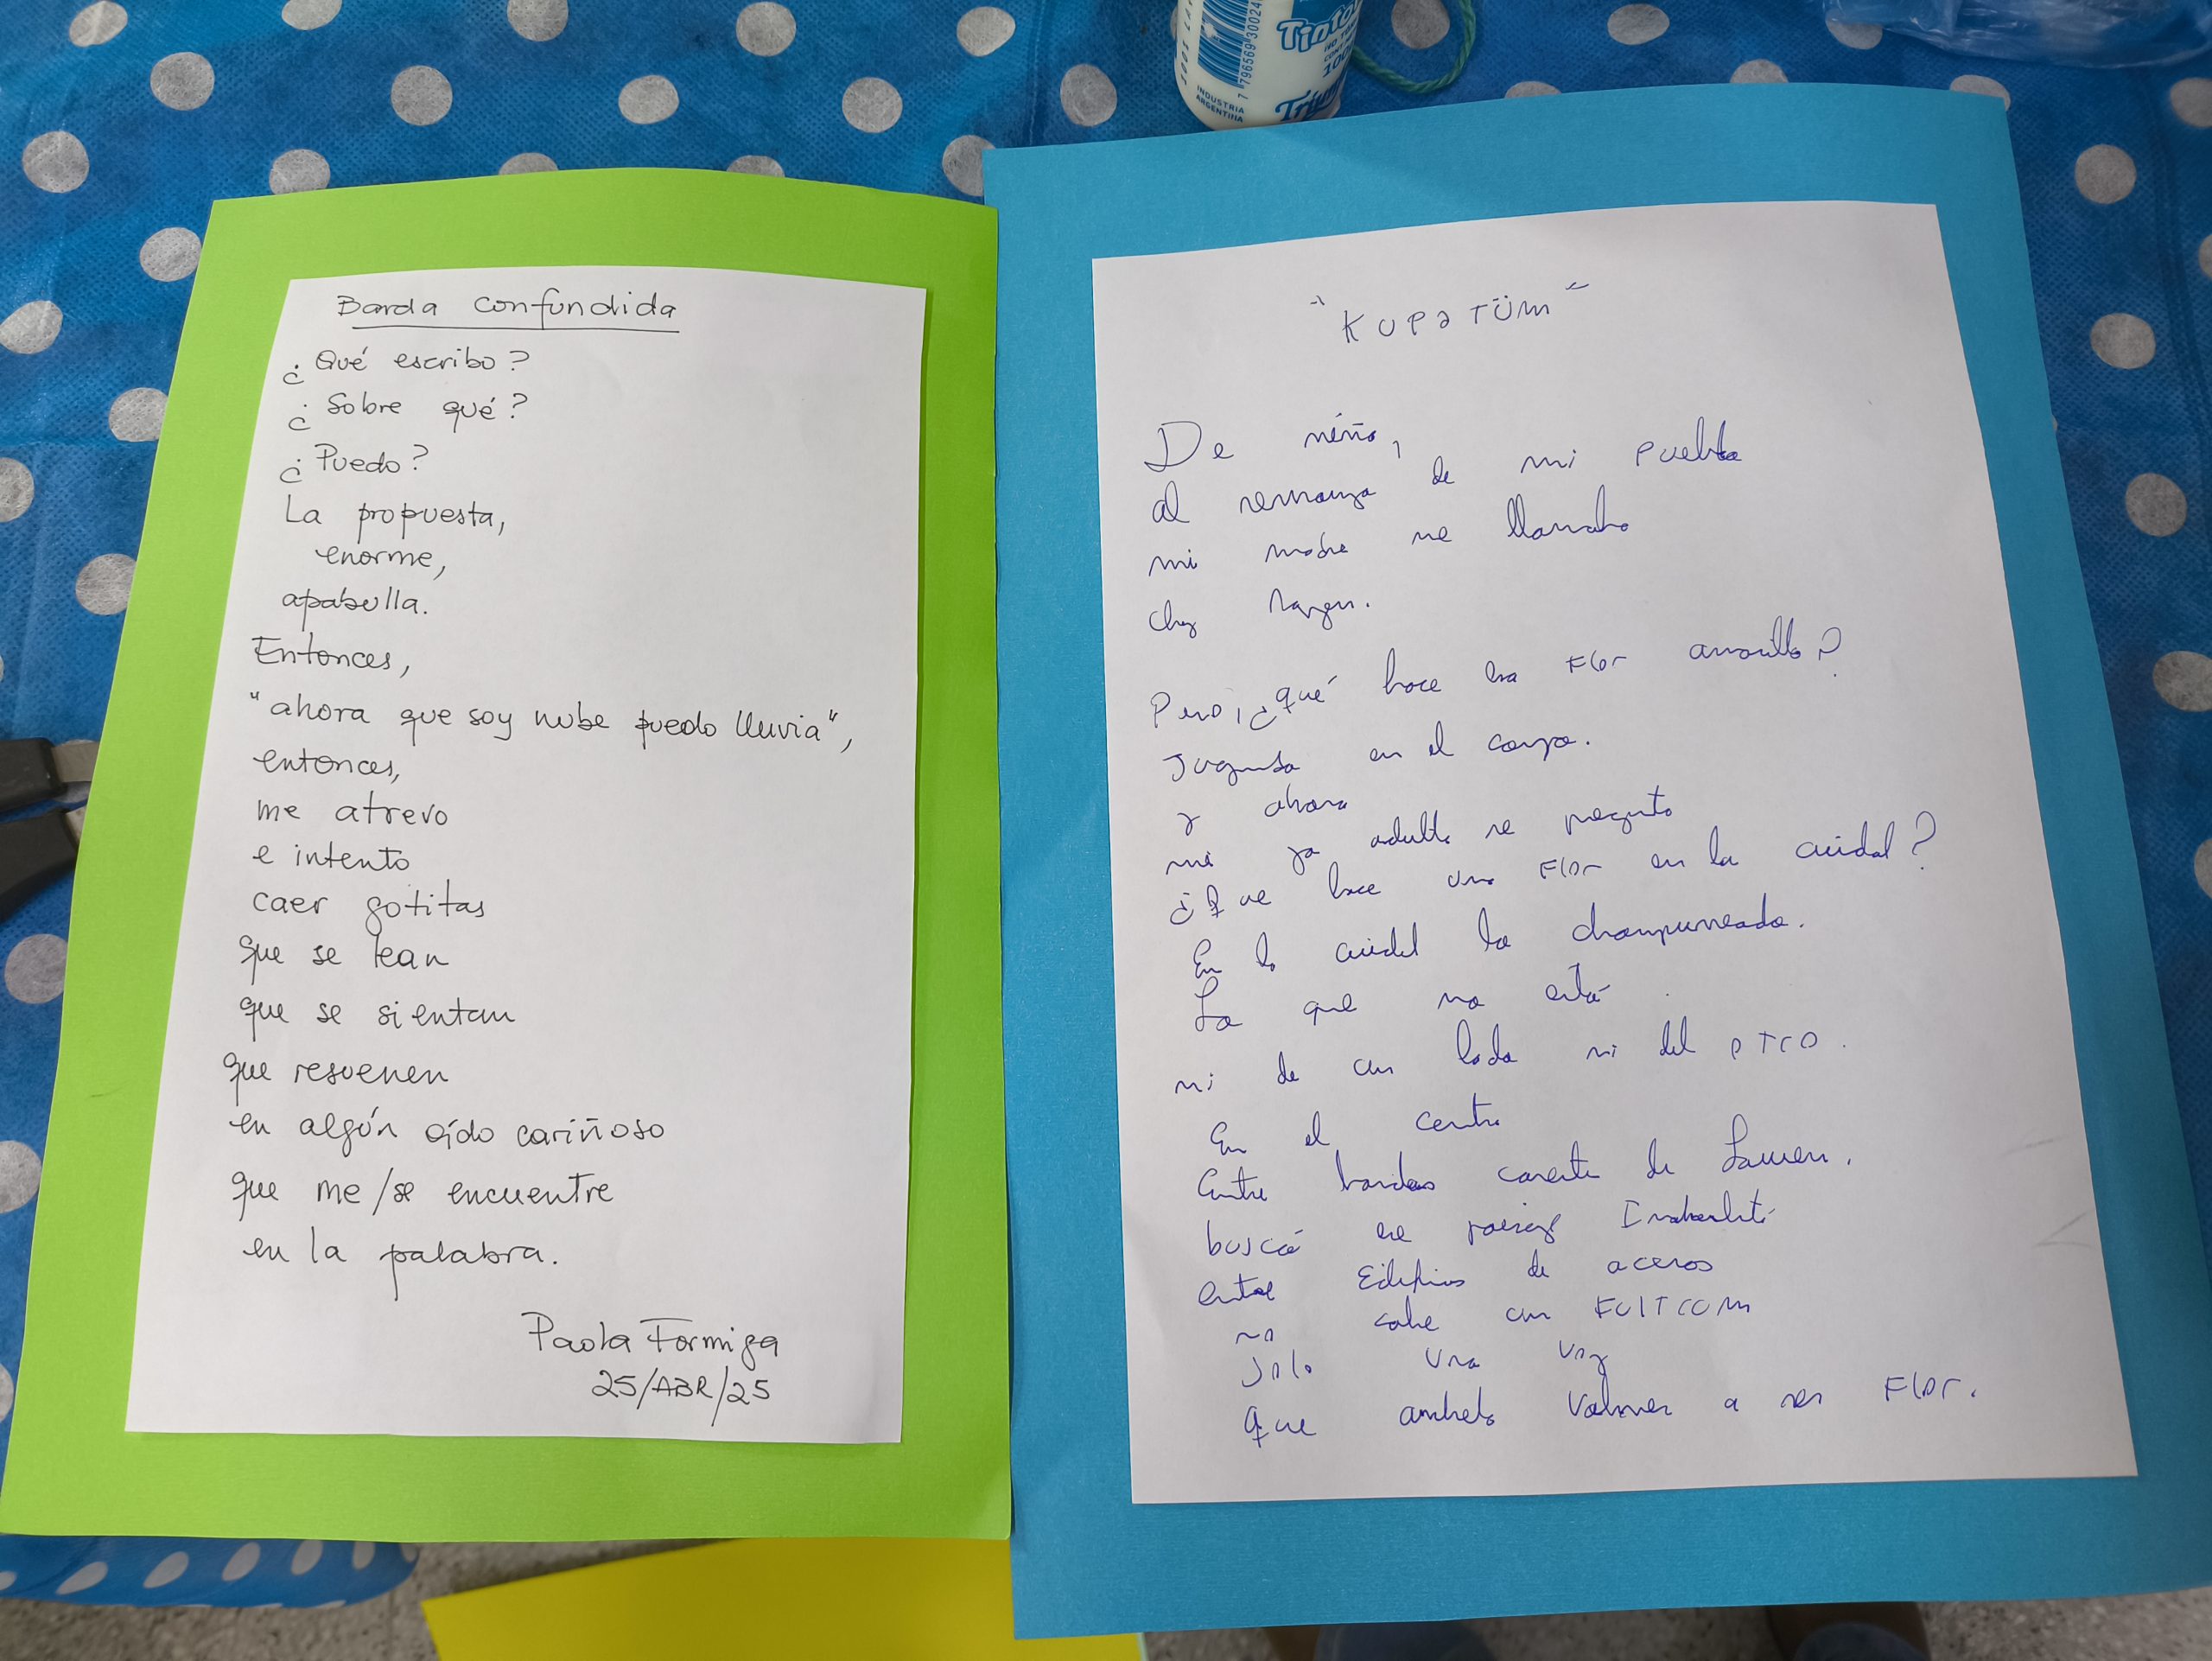 INDUSTRIA
ARGENTINA
Barda confundida
¿Qué escribo?
¿Sobre qué?
¿Puedo?
La propuesta,
enorme,
apabulla.
Entonces,
"ahora que soy nube puedo lluvia",
entonces,
me atrevo
e intento
caer gotitas
que se lean
que se sientan
que resuenen
en algún oído cariñoso
que me/se encuentre
en la palabra.
Paola Formiga
25/ABR/25
"Kupatüm"
De niño,
al remanso de mi pueblo
mi madre me llamaba
Pero, ¿qué hace esa Flor amarilla?
en el campo.
y ahora
mi yo adulto se pregunto
¿Que hace una Flor en la ciudad?
En la ciudad la champurreada.
La que no está
ni de un lado ni del otro.
En el centro
Entre bardas carente de Lawen.
busca
entre Edificios de aceros
no sabe
solo una voz
que anhelo volver a ser Flor.